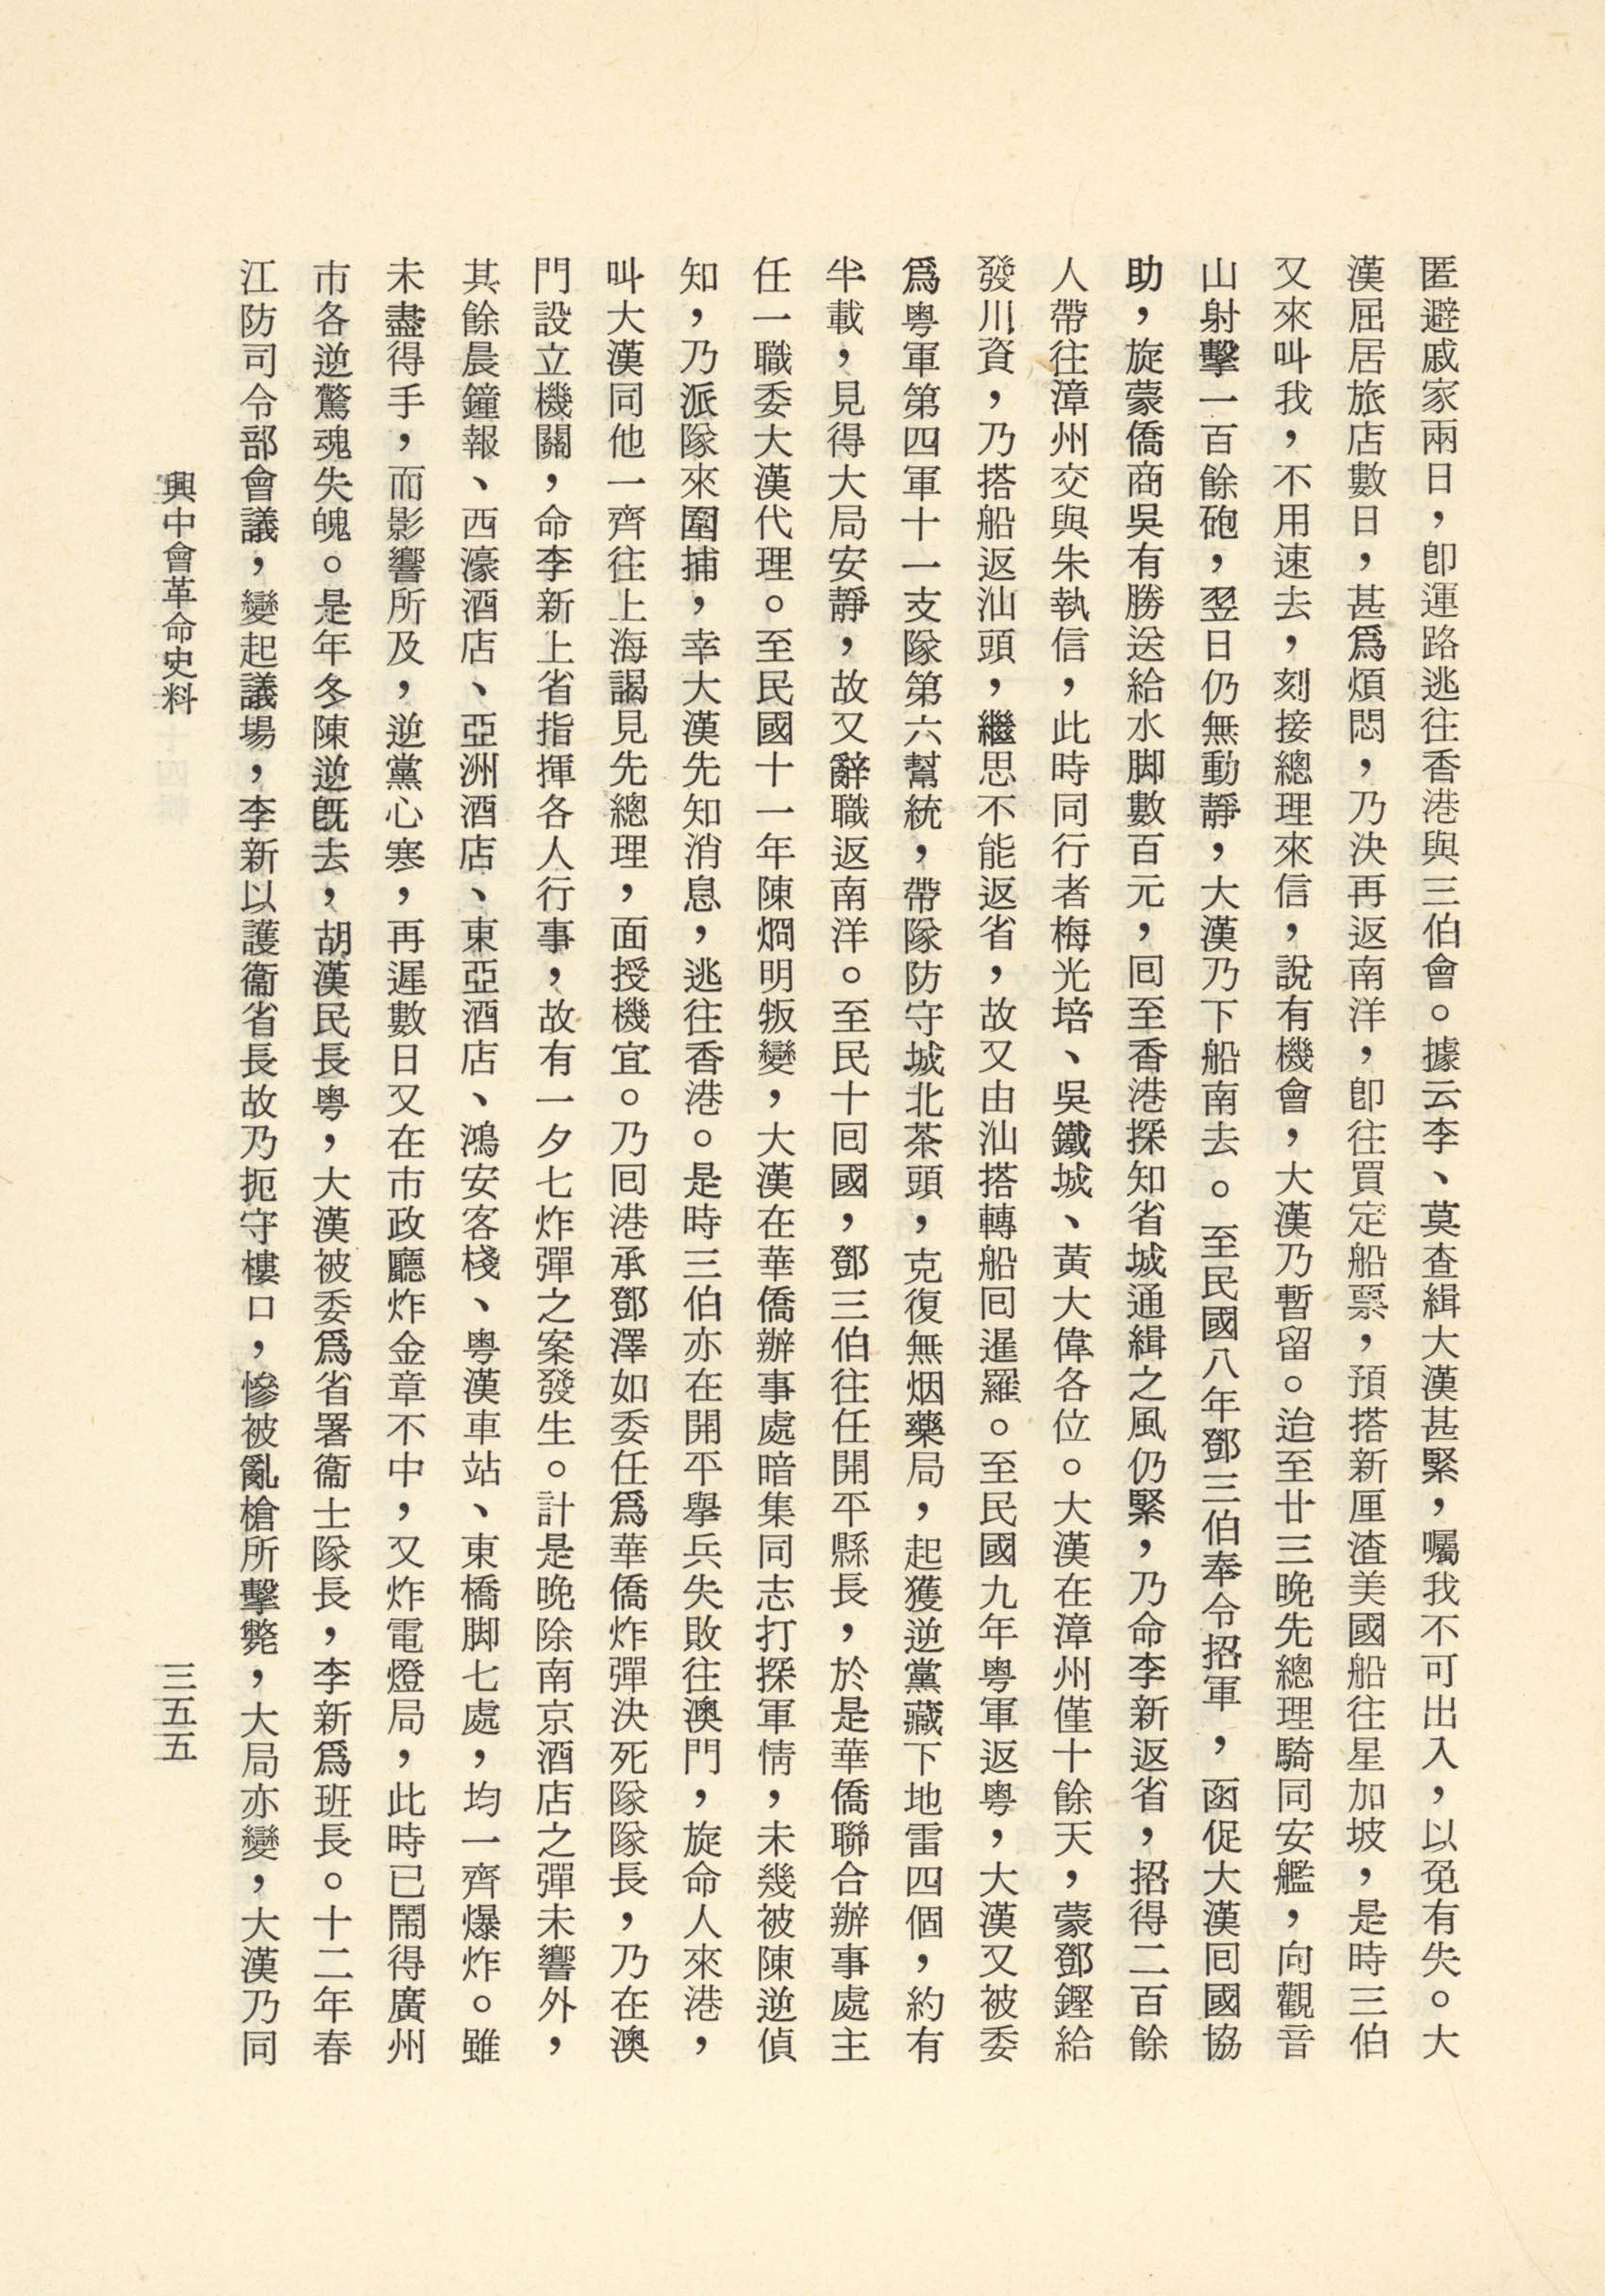 匿避戚家兩日，卽運路逃往香港與三伯會。據云李、莫查緝大漢甚緊，囑我不可出入，以免有失。大
漢屈居旅店數日，甚爲煩悶，乃決再返南洋，卽往買定船票，預搭新厘渣美國船往星加坡，是時三伯
又來叫我，不用速去，刻接總理來信，說有機會，大漢乃暫留。迨至廿三晚先總理騎同安艦，向觀音
山射擊一百餘砲，翌日仍無動靜，大漢乃下船南去。至民國八年鄧三伯奉令招軍，函促大漢囘國協
助，旋蒙僑商吳有勝送給水脚數百元，囘至香港探知省城通緝之風仍緊，乃命李新返省，招得二百餘
人帶往漳州交與朱執信，此時同行者梅光培、吳鐵城、黃大偉各位。大漢在漳州僅十餘天，蒙鄧鏗給
發川資，乃搭船返汕頭，繼思不能返省，故又由汕搭轉船囘暹羅。至民國九年粵軍返粵，大漢又被委
爲粵軍第四軍十一支隊第六幫統，帶隊防守城北茶頭，克復無烟藥局，起獲逆黨藏下地雷四個，約有
半載，見得大局安靜，故又辭職返南洋。至民十囘國，鄧三伯往任開平縣長，於是華僑聯合辦事處主
任一職委大漢代理。至民國十一年陳烱明叛變，大漢在華僑辦事處暗集同志打探軍情，未幾被陳逆偵
知，乃派隊來圍捕，幸大漢先知消息，逃往香港。是時三伯亦在開平擧兵失敗往澳門，旋命人來港，
叫大漢同他一齊往上海謁見先總理，面授機宜。乃囘港承鄧澤如委任爲華僑炸彈決死隊隊長，乃在澳
門設立機關，命李新上省指揮各人行事，故有一夕七炸彈之案發生。計是晚除南京酒店之彈未響外，
其餘晨鐘報、西濠酒店、亞洲酒店、東亞酒店、鴻安客棧、粵漢車站、東橋脚七處，均一齊爆炸。雖
未盡得手，而影響所及，逆黨心寒，再遲數日又在市政廳炸金章不中，又炸電燈局，此時已鬧得廣州
市各逆驚魂失魄。是年冬陳逆旣去，胡漢民長粵，大漢被委爲省署衞士隊長，李新爲班長。十二年春
江防司令部會議，變起議場，李新以護衞省長故乃扼守樓口，慘被亂槍所擊斃，大局亦變，大漢乃同
興中會革命史料
三五五